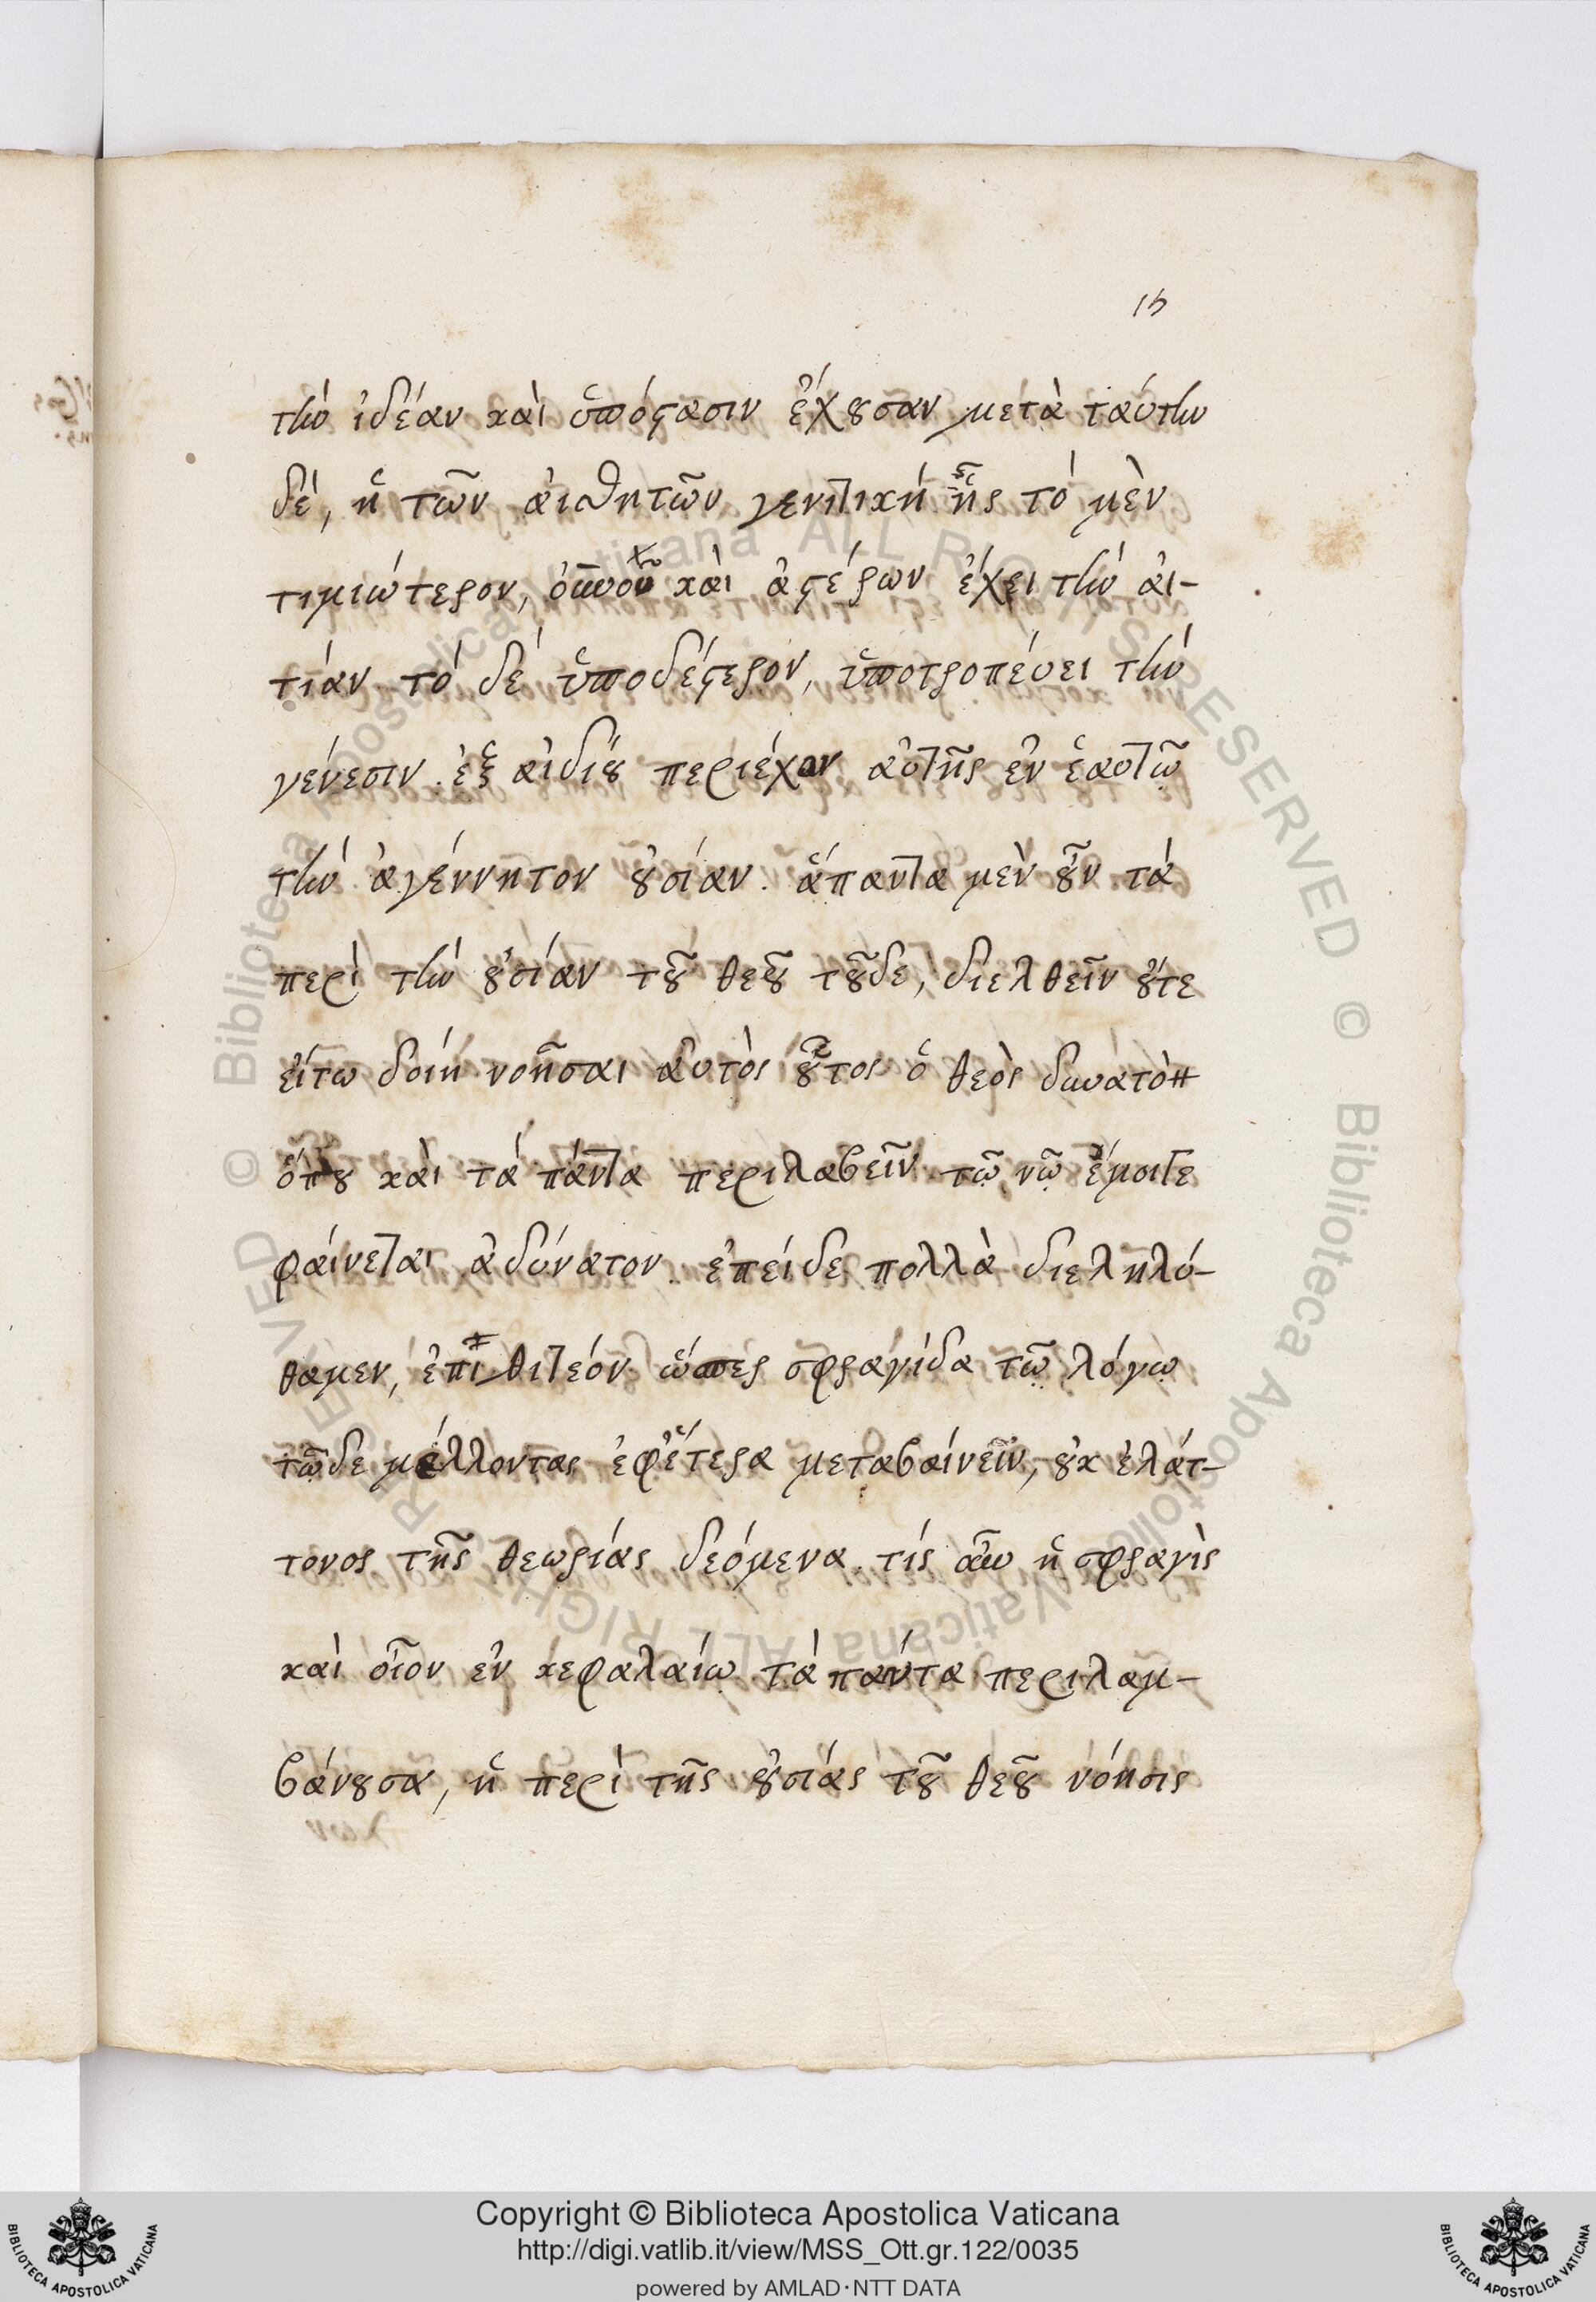 15
τὴν ἰδέαν καὶ ὑπόστασιν ἔχουσαν μετὰ ταύτην
δέ, ἡ τῶν αἰσθητῶν γενητικὴ ἧς τὸ μὲν
τιμιώτερον, καὶ ἀστέρων ἔχει τὴν αἰ-
τίαν τὸ δὲ ὑποδέστερον, ὑποτροπεύει τὴν
γένεσιν. ἐξ ἀϊδίου περιέχων αὐτῆς ἐν ἑαυτῷ
τὴν ἀγέννητον οὐσίαν. ἅπαντα μὲν οὖν τὰ
περὶ τὴν οὐσίαν τοῦ θεοῦ τοῦδε, διελθεῖν οὔτε
εἴτω δοίη νοῆσαι αὐτὸς οὗτος ὁ θεὸς δυνατὸν
ὅπου καὶ τὰ πάντα περιλαβεῖν τῷ νῷ ἔμοιτε
φαίνεται ἀδύνατον. ἐπείδε πολλὰ διεληλύ-
θαμεν, ἐπιθιτεόν ὥσπερ σφραγίδα τῷ λόγῳ
τῷδε μέλλοντας ἐφ' ἕτερα μεταβαίνειν, οὐκ ἐλάτ-
τονος τῆς θεωρίας δεόμενα. τίς οὖν ἡ σφραγὶς
καὶ οἷον ἐν κεφαλαίῳ τὰ πάντα περιλαμ-
βάνουσα, ἡ περὶ τῆς οὐσίας τοῦ θεοῦ νόησις
© Biblioteca Apostolica Vaticana ALL RIGHTS RESERVED © Biblioteca Apostolica Vaticana ALL RIGHTS RESERVED
Copyright © Biblioteca Apostolica Vaticana
http://digi.vatlib.it/view/MSS_Ott.gr.122/0035
powered by AMLAD·NTT DATA
BIBLIOTECA APOSTOLICA VATICANA
BIBLIOTECA APOSTOLICA VATICANA